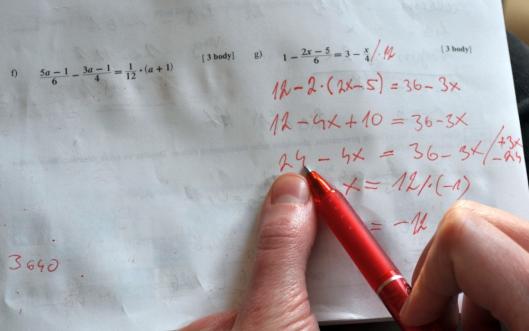 [3 body] g) 1 − (2x − 5)/6 = 3 − x/4 /·12 [3 body]
f) (5a − 1)/6 − (3a − 1)/4 = 1/12 · (a + 1)
12 − 2·(2x−5) = 36 − 3x
12 − 4x + 10 = 36 − 3x
24 − 4x = 36 − 3x /+3x −24
x = 12 /·(−1)
= −12
3640